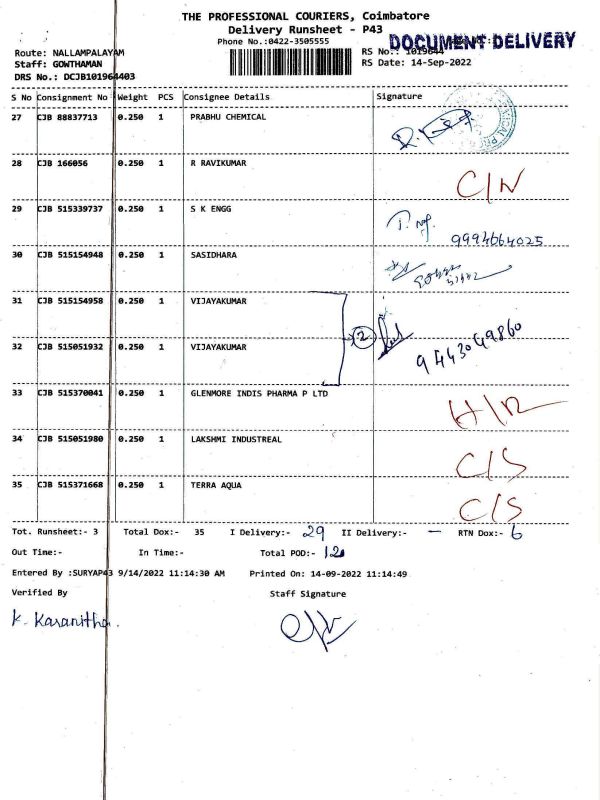 THE PROFESSIONAL COURIERS, Coimbatore
Delivery Runsheet - P43
Phone No.:0422-3505555
DOCUMENT DELIVERY
Route: NALLAMPALAYAM
Staff: GOWTHAMAN
DRS No.: DCJB101964403
RS No.: 1019644
RS Date: 14-Sep-2022
S No Consignment No Weight PCS Consignee Details Signature
27 CJB 88837713 0.250 1 PRABHU CHEMICAL
28 CJB 166056 0.250 1 R RAVIKUMAR C/N
29 CJB 515339737 0.250 1 S K ENGG
9994664025
30 CJB 515154948 0.250 1 SASIDHARA
31 CJB 515154958 0.250 1 VIJAYAKUMAR
2
32 CJB 515051932 0.250 1 VIJAYAKUMAR 9443049860
33 CJB 515370041 0.250 1 GLENMORE INDIS PHARMA P LTD
34 CJB 515051980 0.250 1 LAKSHMI INDUSTREAL C/S
35 CJB 515371668 0.250 1 TERRA AQUA C/S
Tot. Runsheet:- 3 Total Dox:- 35 I Delivery:- 29 II Delivery:- - RTN Dox:- 6
Out Time:- In Time:- Total POD:- 12
Entered By :SURYAP43 9/14/2022 11:14:30 AM Printed On: 14-09-2022 11:14:49
Verified By Staff Signature
K. Karanitha.